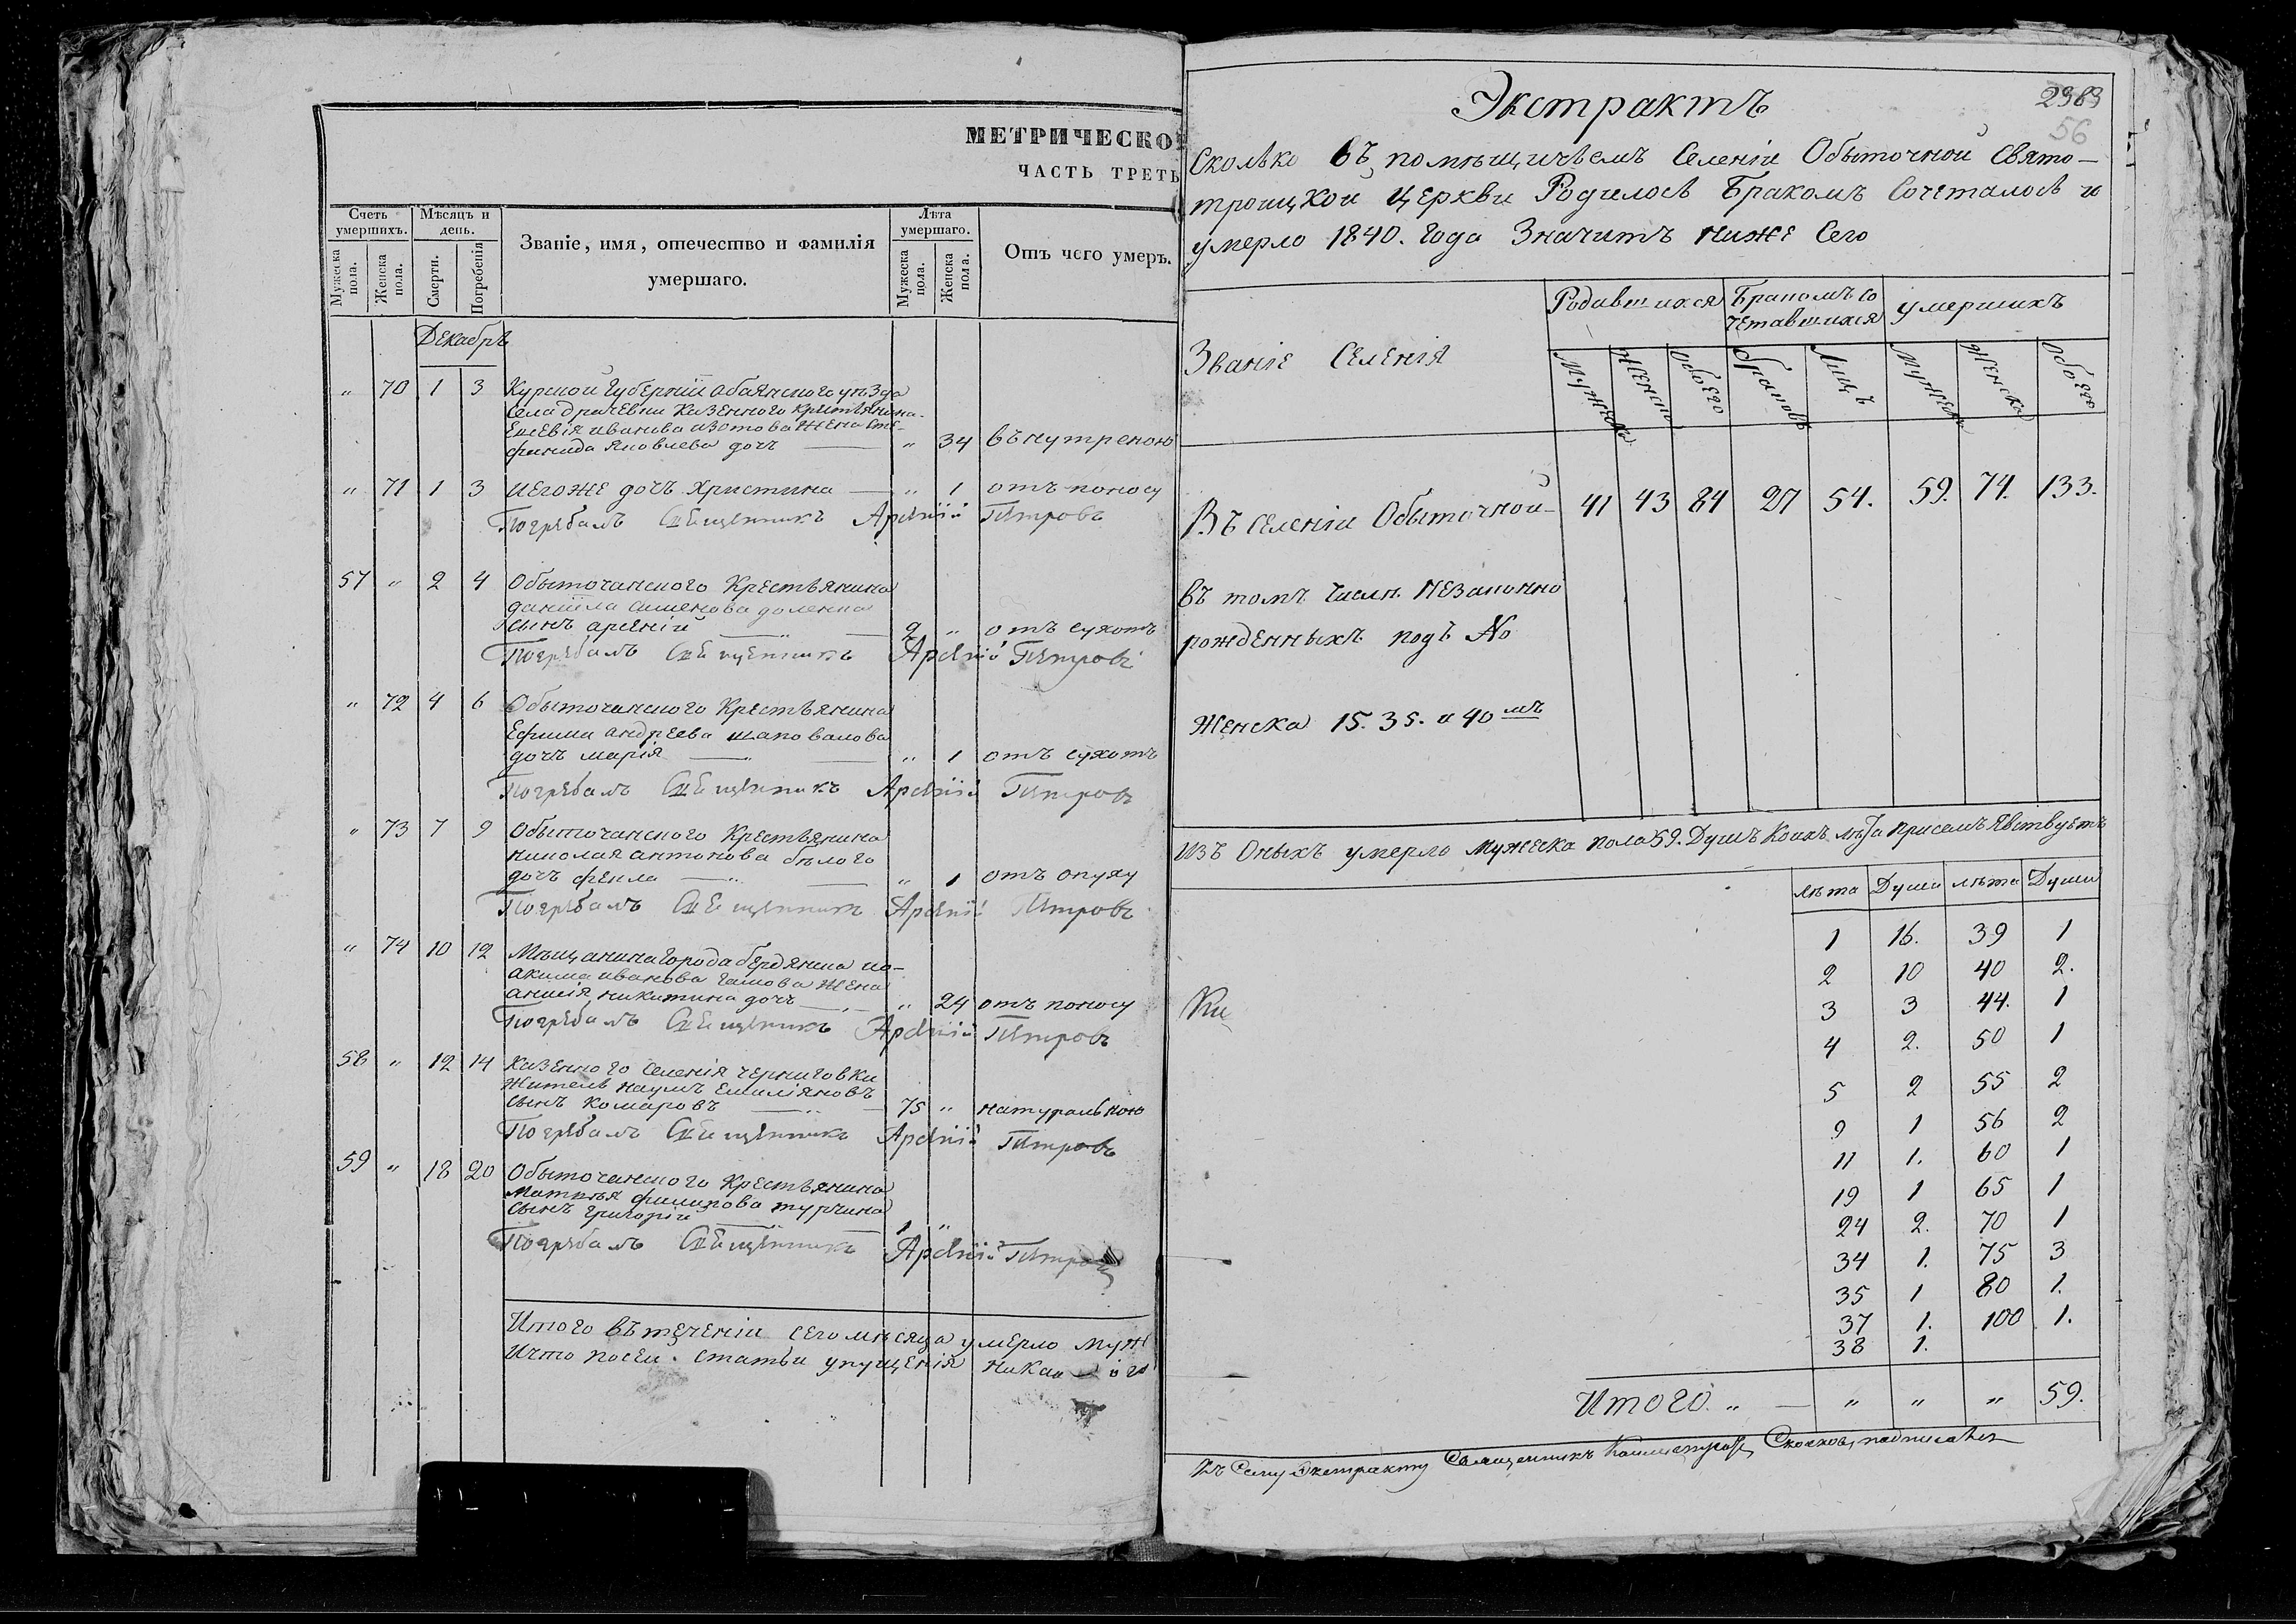 МЕТРИЧЕСКО
ЧАСТЬ ТРЕТЬ
Счетъ умершихъ.
Мѣсяцъ и день.
Званіе, имя, отечество и фамилія умершаго.
Лѣта умершаго.
Отъ чего умеръ.
Мужеска пола.
Женска пола.
Смерти.
Погребенія
Мужеска пола.
Женска пола.
Декабрь
„ 70 1 3 Курской губерніи обаянского уѣзда
села драчевки Казенного крестьянина
иванова изотова жена
яковлева дочь „ 34 вънутреною
„ 71 1 3 иегоже дочь христина „ 1 отъ поносу
Погребалъ Священникъ Арсеній Петровъ
57 „ 2 4 Обыточанского Крестьянина
даніила семенова доленка
сынъ арсеній 2 „ отъ сухотъ
Погребалъ Священникъ Арсеній Петровъ
„ 72 4 6 Обыточанского Крестьянина
Ефима андреева шаповалова
дочь марія „ 1 отъ сухотъ
Погребалъ Священникъ Арсеній Петровъ
„ 73 7 9 Обыточанского Крестьянина
николая антонова бѣлого
дочь фекла „ 1 отъ опуху
Погребалъ Священникъ Арсеній Петровъ
„ 74 10 12 Мѣщанина города бердянска ио-
акима иванова жена
никитина дочь „ 24 отъ поносу
Погребалъ Священникъ Арсеній Петровъ
58 „ 12 14 Казенного селенія черниговки
житель наумъ емиліяновъ
сынъ комаровъ 75 „ натуральною
Погребалъ Священникъ Арсеній Петровъ
59 „ 18 20 Обыточанского Крестьянина
матвѣя филипова турчина
сынъ григорій 1 „
Погребалъ Священникъ Арсеній Петровъ
Итого въ теченіи сего мѣсяца умерло муж
Ичто посеи статьи упущенія
2989
56
Экстрактъ
Сколько въ помѣщичьемъ Селеніи Обыточной Свято-
троицкои Церкви Родилось Бракомъ Сочеталось и
умерло 1840. Года Значитъ ниже Сего
Званіе Селенія
Родившихся
Бракомъ со четавшихся
умершихъ
Мужеска Женска Обоего браковъ Лицъ Мужеск Женска Обоего
Въ Селеніи Обыточной 41 43 84 27 54. 59. 74. 133.
въ томъ числѣ незаконно
рожденныхъ подъ No
Женска 15. 35. и 40мъ
Изъ Оныхъ умерло мужеска пола 59. Душъ Коихъ лѣта присемъ явствуетъ
лѣта Души лѣта Души
1 16. 39 1
2 10 40 2.
3 3 44. 1
4 2. 50 1
5 2 55 2
9 1 56 2
11 1. 60 1
19 1 65 1
24 2. 70 1
34 1. 75 3
35 1 80 1.
37 1. 100 1.
38 1.
Ки
Итого „ „ „ „ 59.
Къ Сему Экстракту Священникъ подписался